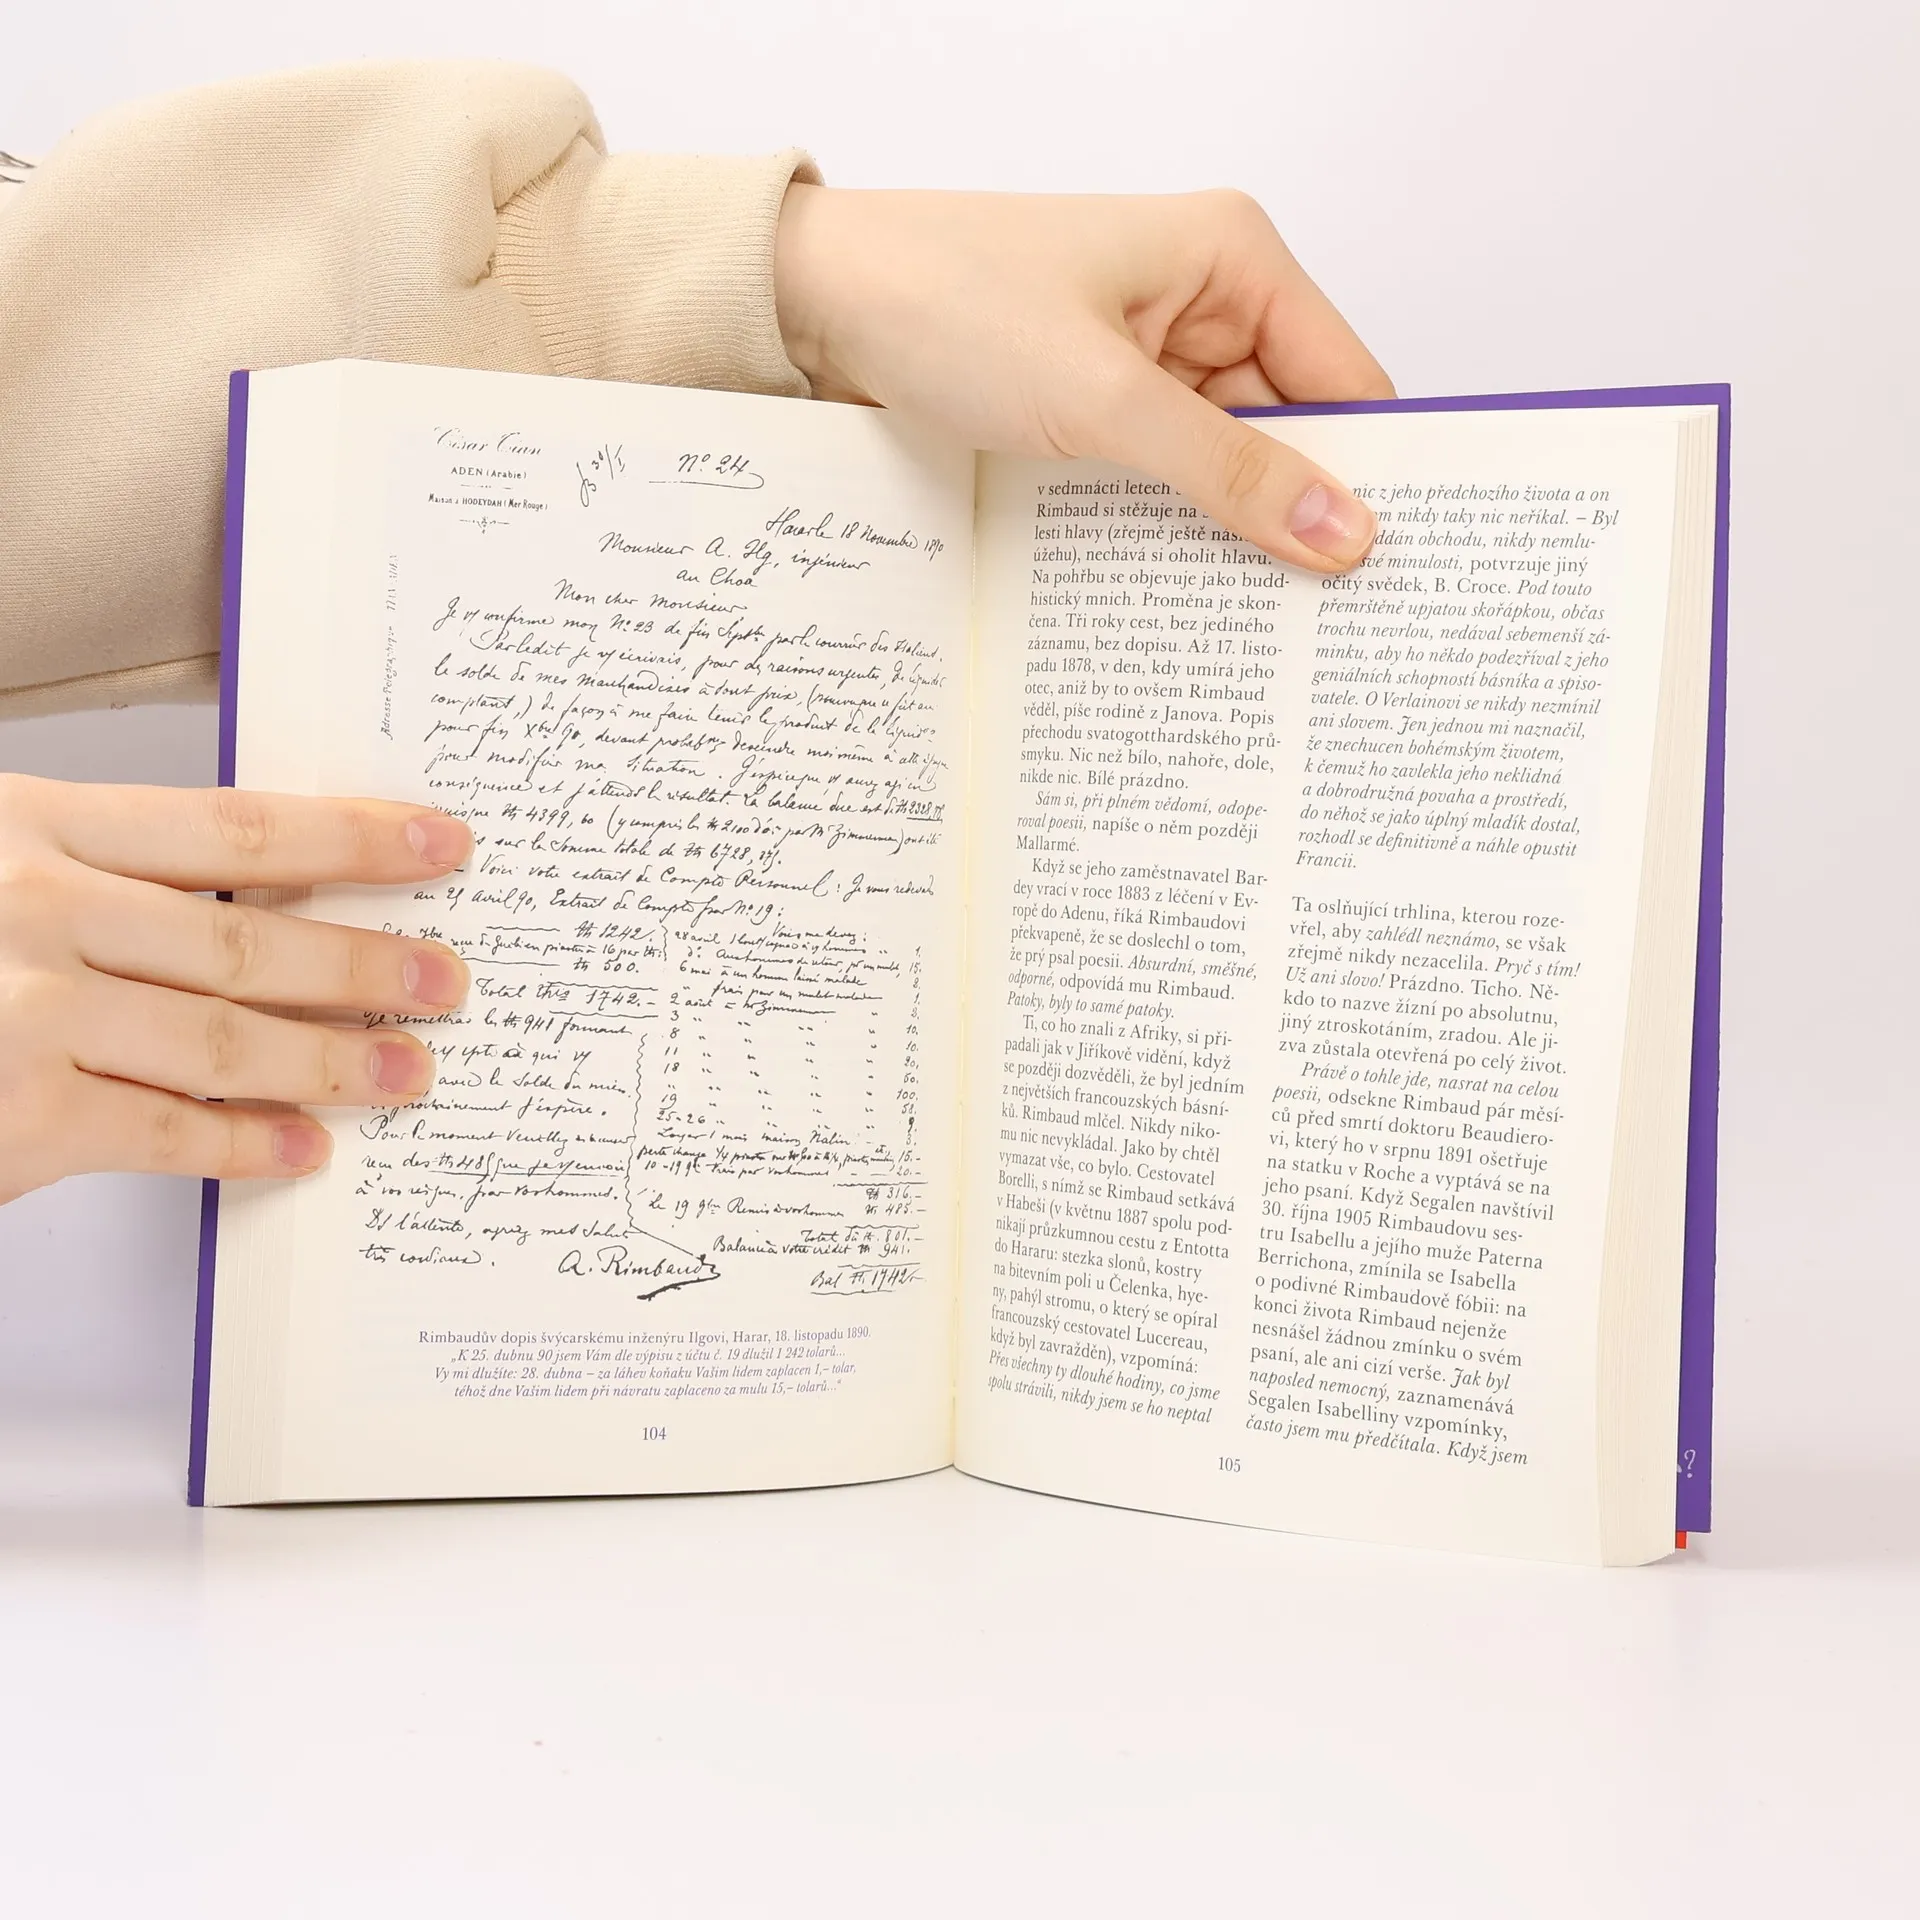 César Tian
ADEN (Arabie)
Maison à HODEYDAH (Mer Rouge)
Nº 24
Hararle 18 Novembre 1890
Monsieur A. Ilg, ingénieur
au Choa
Mon cher Monsieur
Je vs confirme mon Nº 23 de fin Septbre par le courrier des Italiens.
Par ledit je vs écrivais, pour des raisons urgentes, de liquider
le solde de mes marchandises à tout prix, (pourvu que ce fût au
comptant,) de façon à me faire tenir le produit de la liquidon
pour fin Xbre 90, devant probabt descendre moi même à cette époque
pour modifier ma situation. J'espère que vs aurez agi en
conséquence et j'attends le résultat. La balance due est de th 2328,
puisque th 4399, 60 (y compris les th 2100 d° par Mr Zimmerman) ont été
sur la Somme totale de th 6728, 875.
Voici votre extrait de Compte Personnel : Je vous redevais
au 25 avril 90, Extrait de Compte Nº 19 :
th 1242.
th 500.
Total ths 1742.-
Je remettrai les th 941 formant
avec le solde du mien
prochainement j'espère.
Pour le moment veuillez
reçu des th 485 que je envoie
à vos risques, par vos hommes.
Ds l'attente, agréez mes saluts
très cordiaux.
A. Rimbaud
Vous me devez :
28 avril
6 mai à un homme laissé malade
frais pour un mulet malade
2 août à Mr Zimmerman
3
8
11
18
19
25-26
Loyer 1 mois maison
Le 19 9bre Remis à vos hommes th 485.-
th 316,-
Total dû th. 801.-
Balance à votre crédit th 941.
Bal th. 1742-
Rimbaudův dopis švýcarskému inženýru Ilgovi, Harar, 18. listopadu 1890.
„K 25. dubnu 90 jsem Vám dle výpisu z účtu č. 19 dlužil 1 242 tolarů...
Vy mi dlužíte: 28. dubna – za láhev koňaku Vašim lidem zaplacen 1,– tolar,
téhož dne Vašim lidem při návratu zaplaceno za mulu 15,– tolarů..."
104
v sedmnácti letech
Rimbaud si stěžuje na
lesti hlavy (zřejmě ještě
úžehu), nechává si oholit hlavu.
Na pohřbu se objevuje jako budd-
histický mnich. Proměna je skon-
čena. Tři roky cest, bez jediného
záznamu, bez dopisu. Až 17. listo-
padu 1878, v den, kdy umírá jeho
otec, aniž by to ovšem Rimbaud
věděl, píše rodině z Janova. Popis
přechodu svatogotthardského prů-
smyku. Nic než bílo, nahoře, dole,
nikde nic. Bílé prázdno.
Sám si, při plném vědomí, odope-
roval poesii, napíše o něm později
Mallarmé.
Když se jeho zaměstnavatel Bar-
dey vrací v roce 1883 z léčení v Ev-
ropě do Adenu, říká Rimbaudovi
překvapeně, že se doslechl o tom,
že prý psal poesii. Absurdní, směšné,
odporné, odpovídá mu Rimbaud.
Patoky, byly to samé patoky.
Ti, co ho znali z Afriky, si při-
padali jak v Jiříkově vidění, když
se později dozvěděli, že byl jedním
z největších francouzských básní-
ků. Rimbaud mlčel. Nikdy niko-
mu nic nevykládal. Jako by chtěl
vymazat vše, co bylo. Cestovatel
Borelli, s nímž se Rimbaud setkává
v Habeši (v květnu 1887 spolu pod-
nikají průzkumnou cestu z Entotta
do Hararu: stezka slonů, kostry
na bitevním poli u Čelenka, hye-
ny, pahýl stromu, o který se opíral
francouzský cestovatel Lucereau,
když byl zavražděn), vzpomíná:
Přes všechny ty dlouhé hodiny, co jsme
spolu strávili, nikdy jsem se ho neptal
nic z jeho předchozího života a on
nikdy taky nic neříkal. – Byl
obchodu, nikdy nemlu-
své minulosti, potvrzuje jiný
očitý svědek, B. Croce. Pod touto
přemrštěně upjatou skořápkou, občas
trochu nevrlou, nedával sebemenší zá-
minku, aby ho někdo podezříval z jeho
geniálních schopností básníka a spiso-
vatele. O Verlainovi se nikdy nezmínil
ani slovem. Jen jednou mi naznačil,
že znechucen bohémským životem,
k čemuž ho zavlekla jeho neklidná
a dobrodružná povaha a prostředí,
do něhož se jako úplný mladík dostal,
rozhodl se definitivně a náhle opustit
Francii.
Ta oslňující trhlina, kterou roze-
vřel, aby zahlédl neznámo, se však
zřejmě nikdy nezacelila. Pryč s tím!
Už ani slovo! Prázdno. Ticho. Ně-
kdo to nazve žízní po absolutnu,
jiný ztroskotáním, zradou. Ale ji-
zva zůstala otevřená po celý život.
Právě o tohle jde, nasrat na celou
poesii, odsekne Rimbaud pár měsí-
ců před smrtí doktoru Beaudiero-
vi, který ho v srpnu 1891 ošetřuje
na statku v Roche a vyptává se na
jeho psaní. Když Segalen navštívil
30. října 1905 Rimbaudovu ses-
tru Isabellu a jejího muže Paterna
Berrichona, zmínila se Isabella
o podivné Rimbaudově fóbii: na
konci života Rimbaud nejenže
nesnášel žádnou zmínku o svém
psaní, ale ani cizí verše. Jak byl
naposled nemocný, zaznamenává
Segalen Isabelliny vzpomínky,
často jsem mu předčítala. Když jsem
105
?